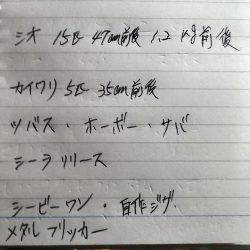 シオ 15匹 47cm前後 1.2kg前後
カイワリ 5匹 35cm前後
ツバス・ホーボー・サバ
シーラ リリース
シービーワン・自作ジグ
メタルフリッカー